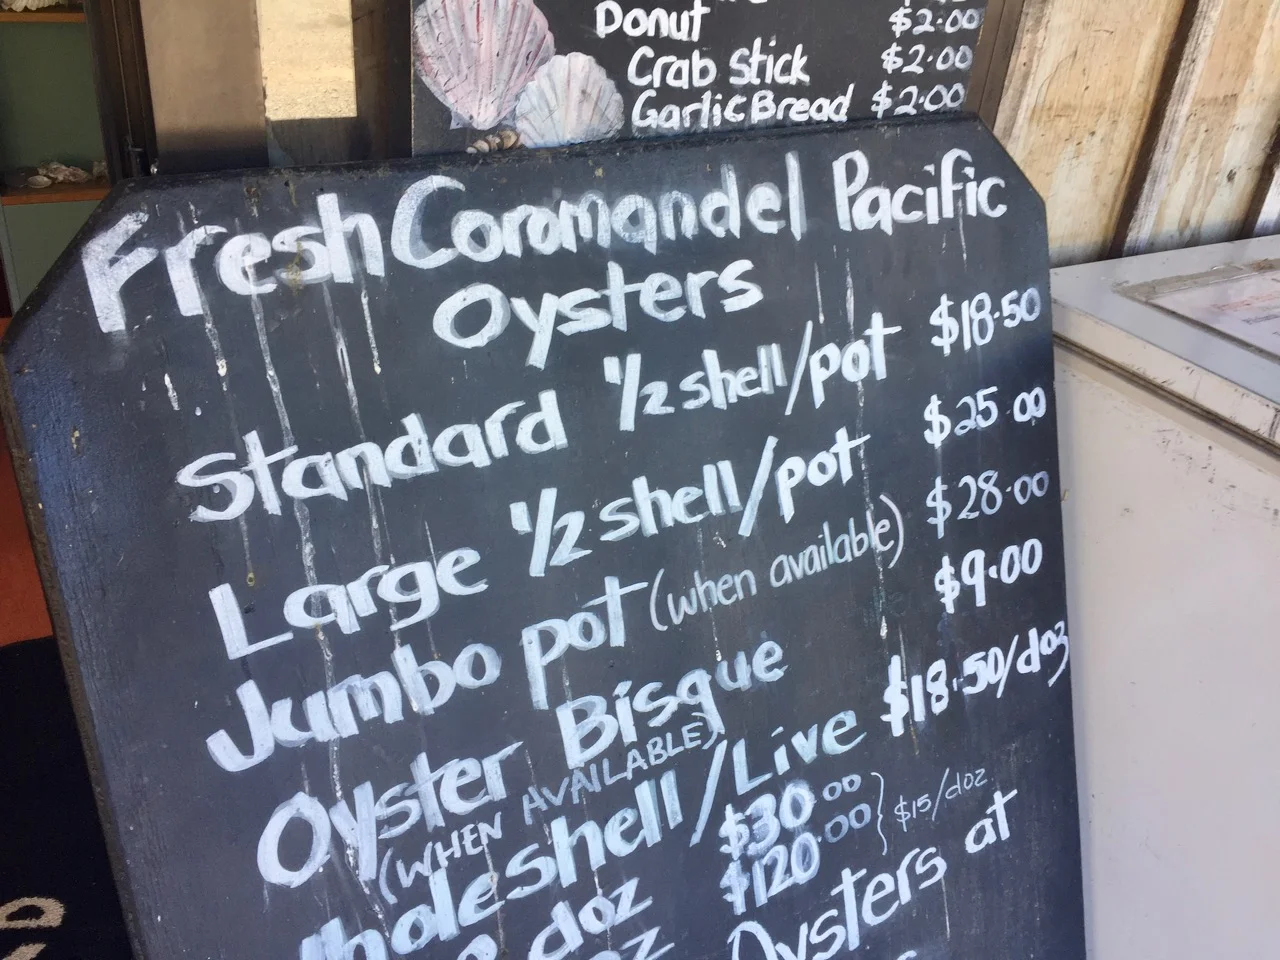 Donut $2.00
Crab Stick $2.00
Garlic Bread $2.00
Fresh Coromandel Pacific
Oysters
Standard 1/2 shell/pot $18.50
Large 1/2 shell/pot $25.00
Jumbo pot (when available) $28.00
Oyster Bisque $9.00
(WHEN AVAILABLE)
holeshell/Live $18.50/doz
doz $30.00
oz $120.00 } $15/doz
Oysters at